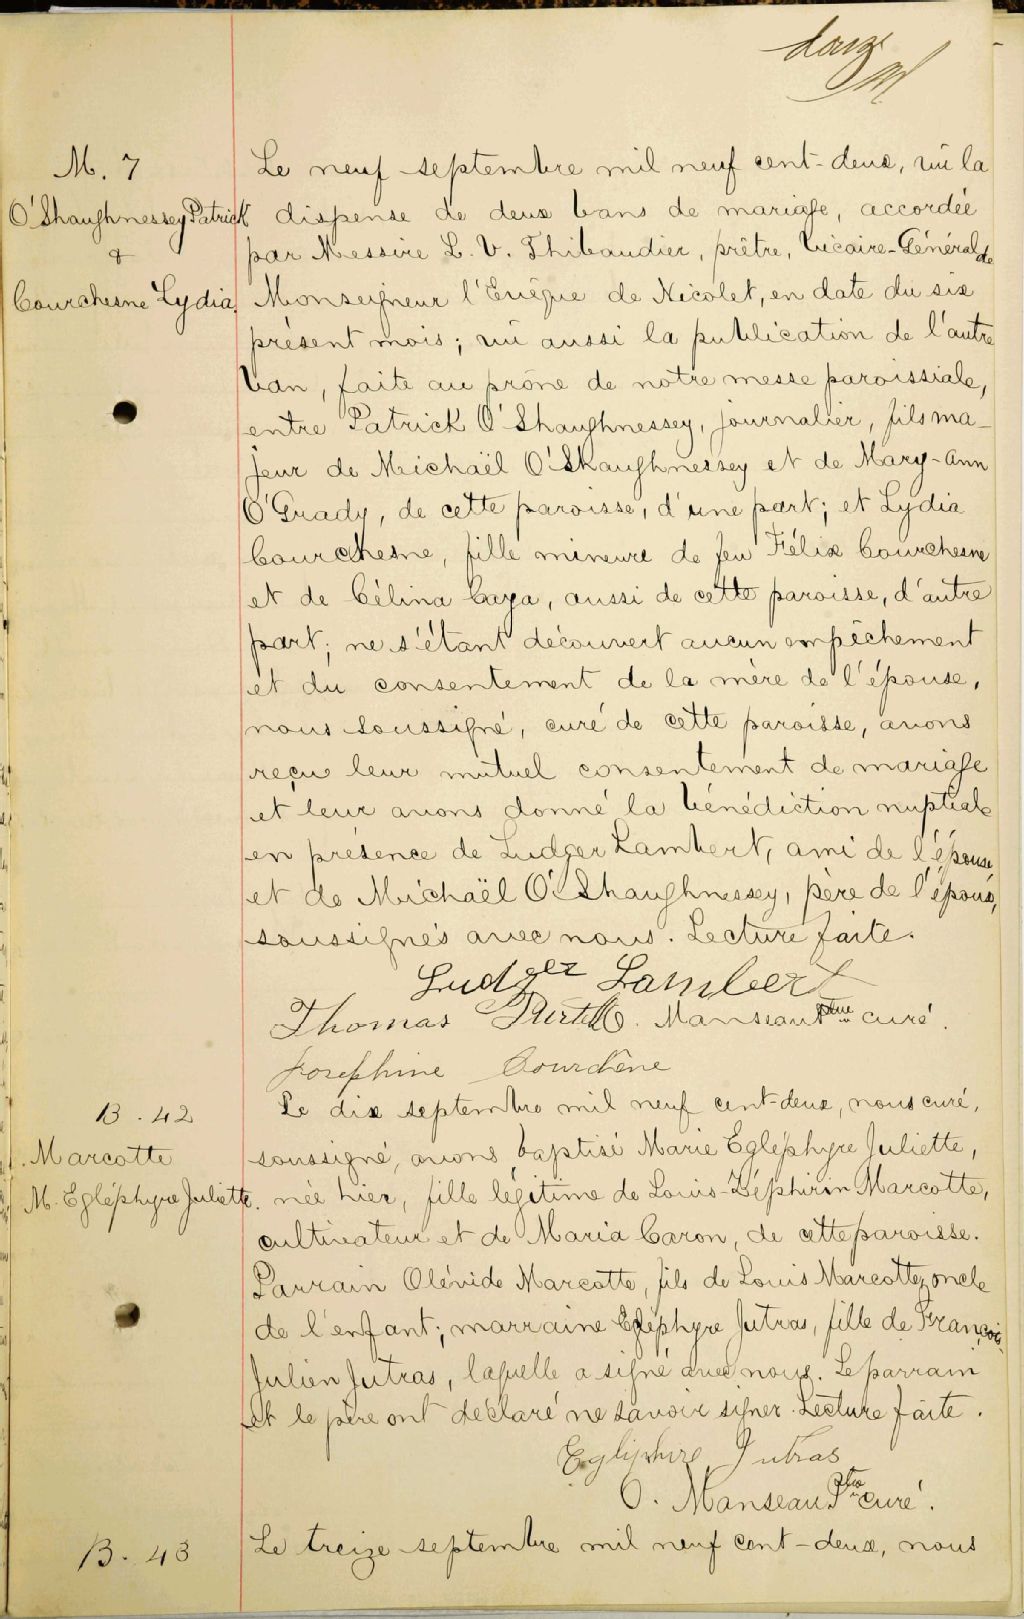 douze
M. 7
O'Shaughnessey Patrick
&
Courchesne Lydia.
Le neuf septembre mil neuf cent-deux, vû la
dispense de deux bans de mariage, accordée
par Messire L. V. Thibaudier, prêtre, Vicaire-Général de
Monseigneur l'Evêque de Nicolet, en date du six
présent mois; vû aussi la publication de l'autre
ban, faite au prône de notre messe paroissiale,
entre Patrick O'Shaughnessey, journalier, fils ma-
jeur de Michaël O'Shaughnessey et de Mary-Ann
O'Grady, de cette paroisse, d'une part; et Lydia
Courchesne, fille mineure de feu Félix Courchesne
et de Célina Caya, aussi de cette paroisse, d'autre
part; ne s'étant découvert aucun empêchement
et du consentement de la mère de l'épouse,
nous soussigné, curé de cette paroisse, avons
reçu leur mutuel consentement de mariage
et leur avons donné la bénédiction nuptiale
en présence de Ludger Lambert, ami de l'épouse
et de Michaël O'Shaughnessey, père de l'époux,
soussignés avec nous. Lecture faite.
Ludger Lambert
Thomas O. Manseau Ptre curé.
Josephine Courchêne
B. 42
Marcotte
M. Egléphyre Juliette.
Le dix septembre mil neuf cent-deux, nous curé,
soussigné, avons baptisé Marie Egléphyre Juliette,
née hier, fille légitime de Louis-Zéphirin Marcotte,
cultivateur et de Maria Caron, de cette paroisse.
Parrain Olévide Marcotte, fils de Louis Marcotte, oncle
de l'enfant; marraine Egléphyre Jutras, fille de François
Julien Jutras, laquelle a signé avec nous. Le parrain
et le père ont déclaré ne savoir signer. Lecture faite.
Egliphire Jutras
O. Manseau Ptre curé.
B. 43
Le treize septembre mil neuf cent-deux, nous